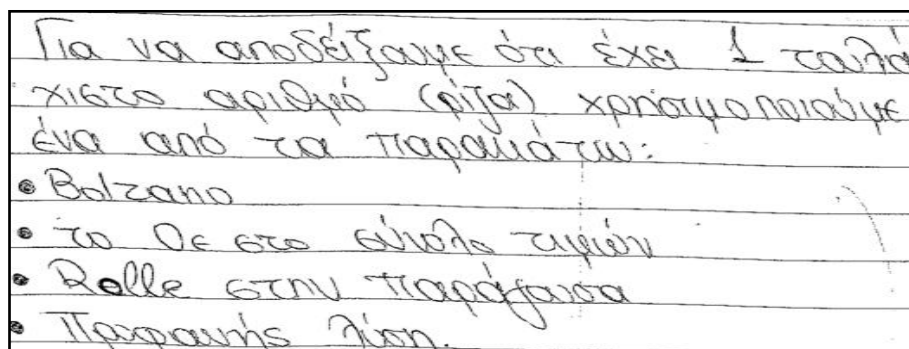 Για να αποδείξουμε ότι έχει 1 τουλά
χιστο αριθμό (ρίζα) χρησιμοποιούμε
ένα από τα παρακάτω:
• Bolzano
• το 0ε στο σύνολο τιμών
• Rolle στην παράγουσα
• Προφανής λύση.